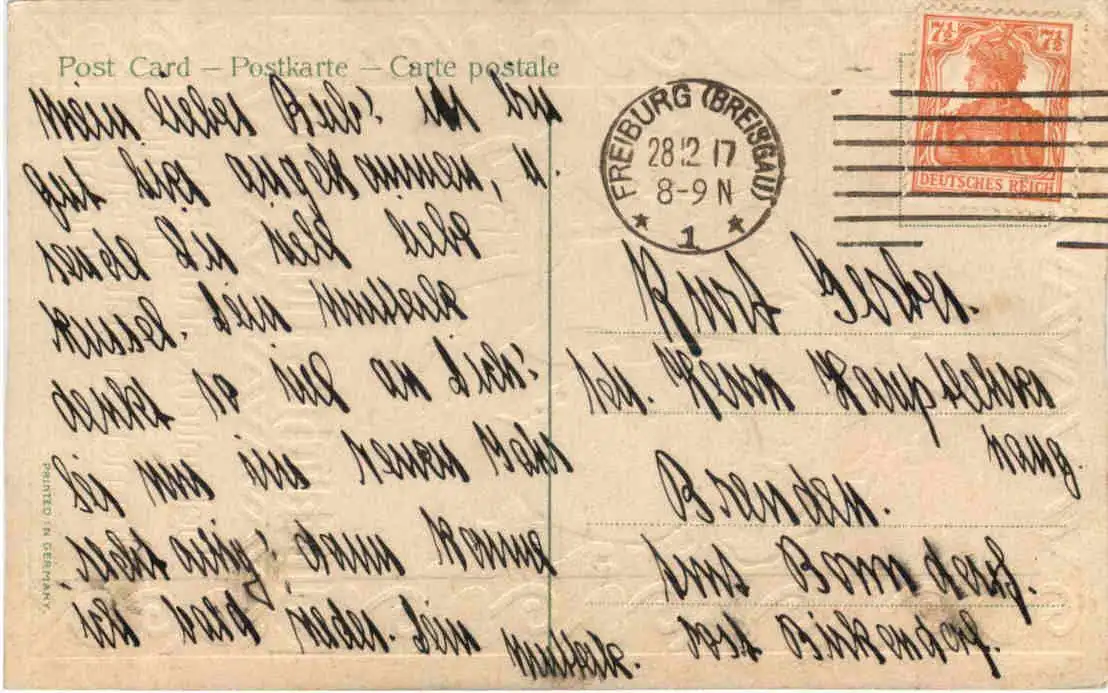 Post Card – Postkarte – Carte postale
Mein lieber Bub! ich bin
gut hier angekommen, u.
sende Dir recht liebe
Küssel. Dein Mutterle
denkt so viel an Dich!
Sei nur im neuen Jahr
recht artig! dann komme
ich bald wieder. Dein
Mutterle.
PRINTED IN GERMANY.
FREIBURG (BREISGAU)
28 12 17
8-9 N
1
7½ 7½
DEUTSCHES REICH
Kurt Gerber.
Herrn Hauptlehrer
Brenden.
Amt Bonndorf.
Post Birkendorf.